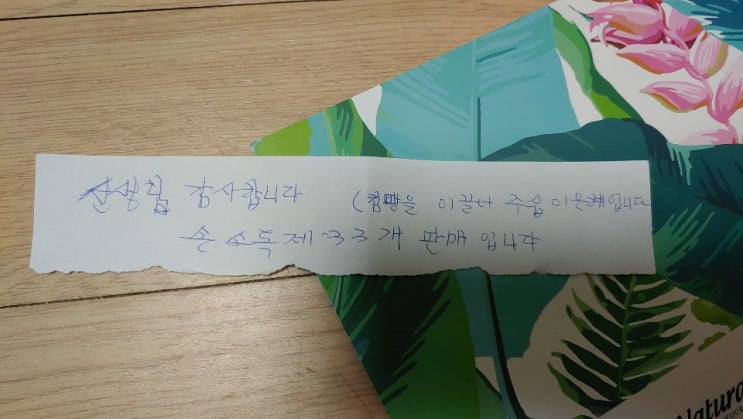 선생님 감사합니다 (컴팡을 이끌어 주심 이은혜입니다
손소독제 33개 판매입니다
Natura